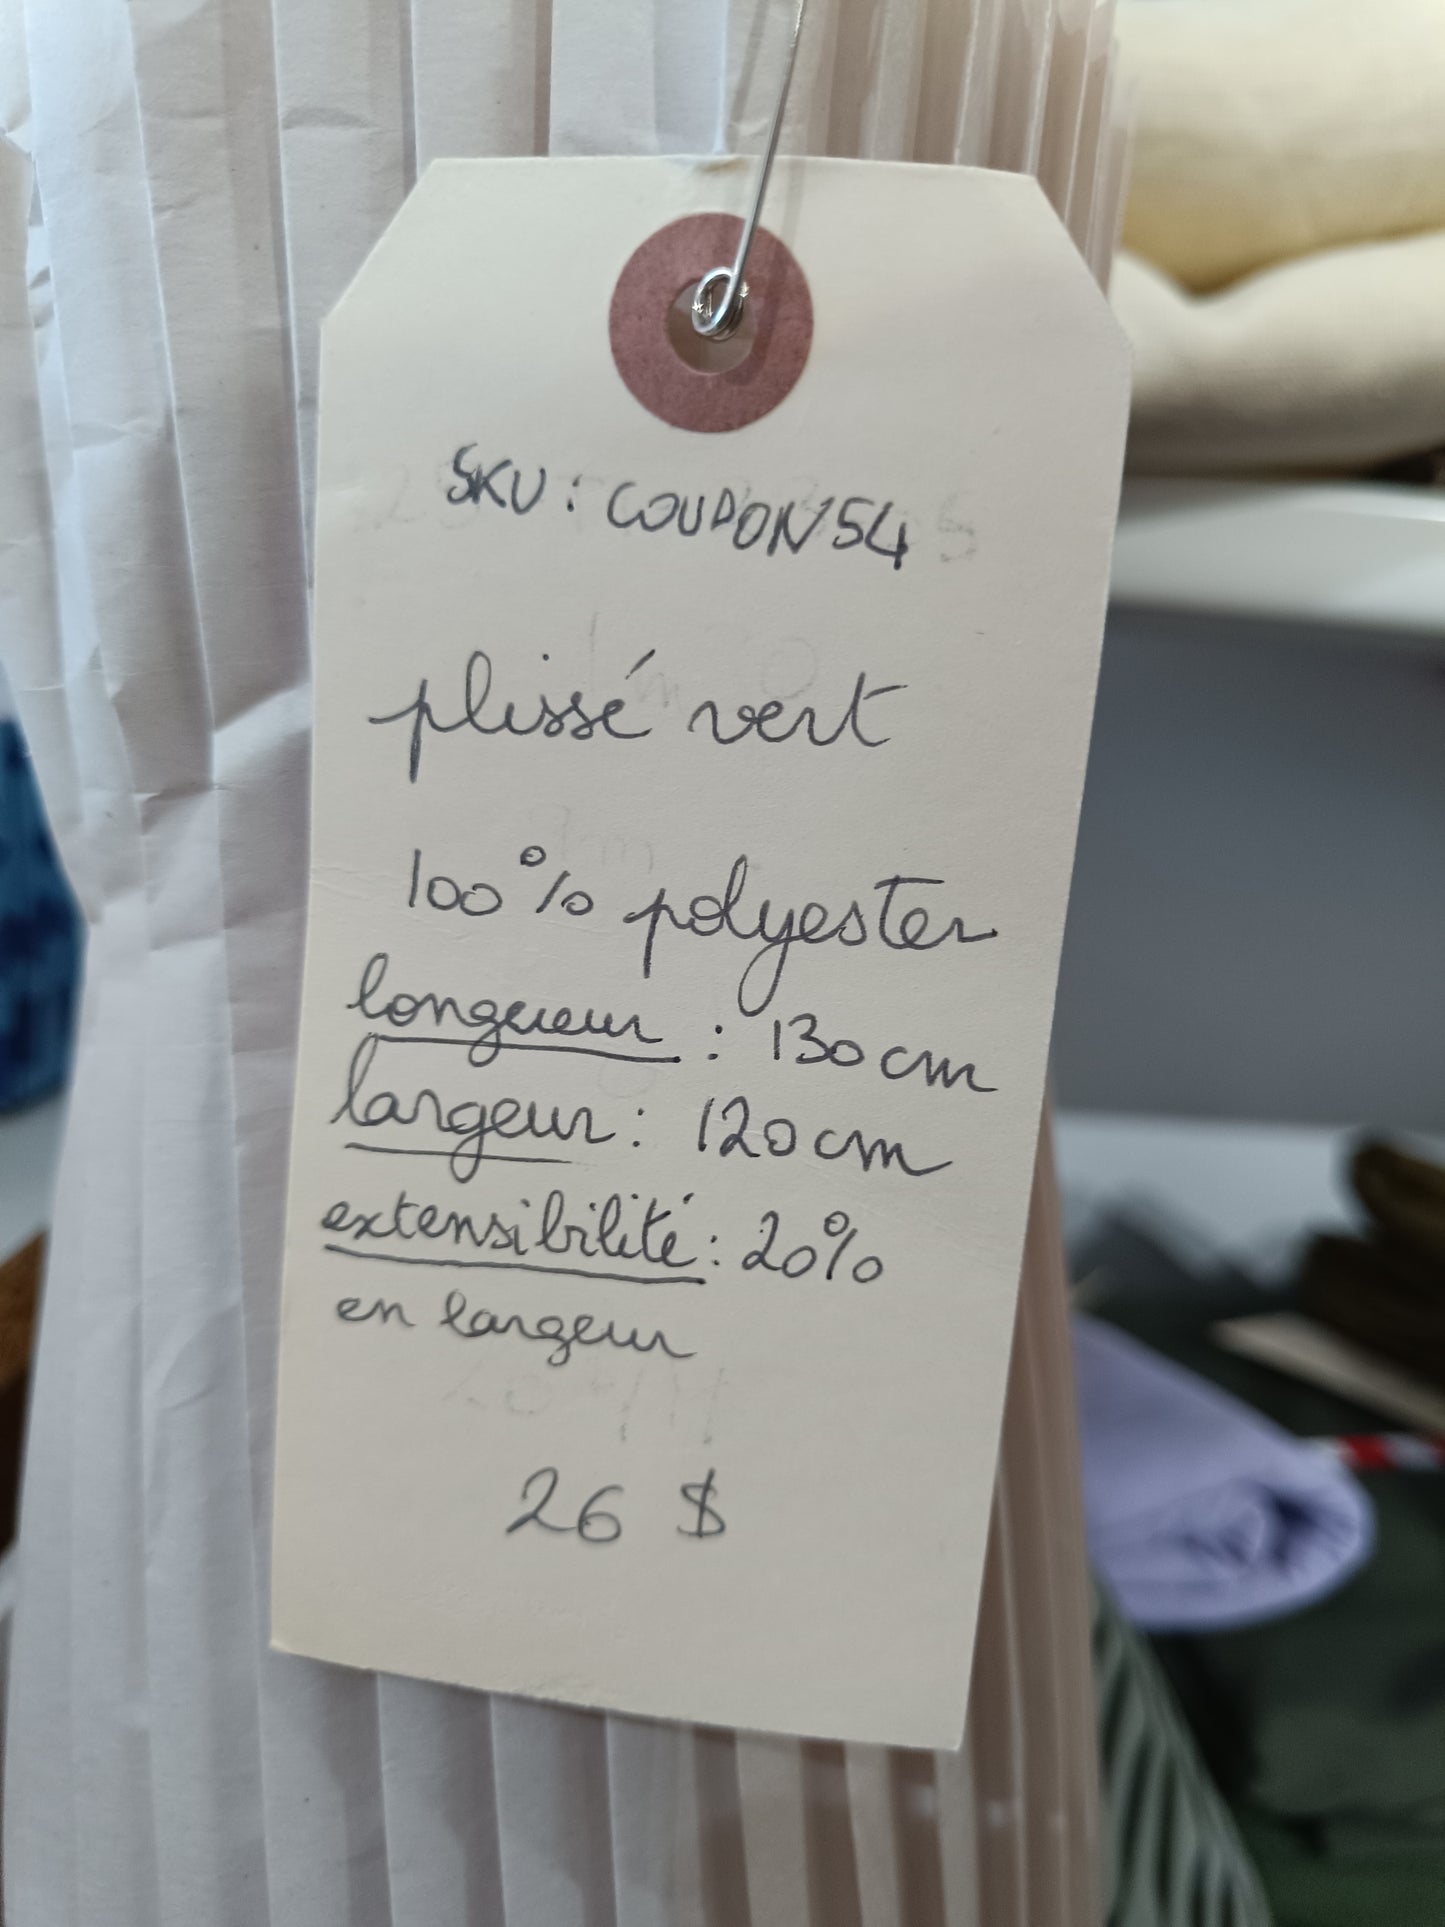 SKU : COUPON54
plissé vert
100% polyester
longueur : 130 cm
largeur : 120 cm
extensibilité : 20%
en largeur
26 $